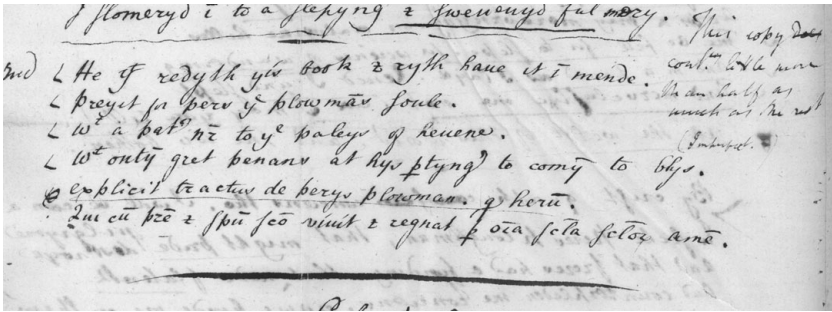 I slomeryd ī to a slepyng & swevenyd ful mery.
End ⟨ He yt redyth yis book & ryth haue it ī mende.
⟨ preyit for pers ye plowmās soule.
⟨ wt a patr nr to ye paleys of heuene.
⟨ wt outȳ gret penans at hys ptyng to comȳ to blys.
explicit tractus de perys plowman. q herū.
Qui cū prē & spū scō viuit & regnat p oīa scla sclor amē.
This copy does
contn little more
than half as
much as the rest
(Imperfect.)